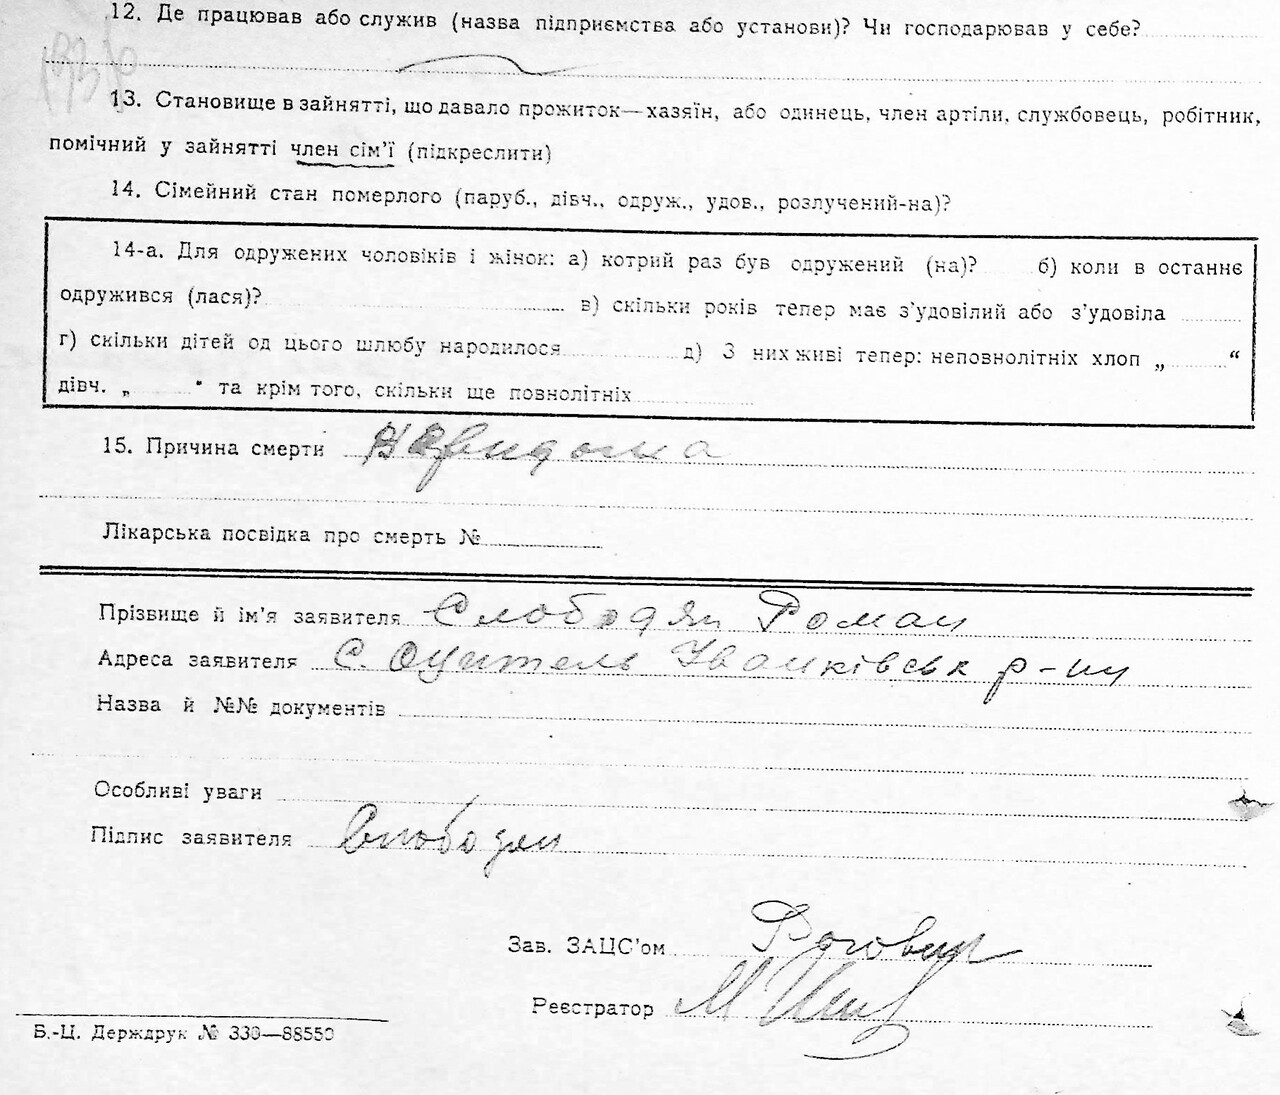 12. Де працював або служив (назва підприємства або установи)? Чи господарював у себе?
13. Становище в зайнятті, що давало прожиток—хазяїн, або одинець, член артіли, службовець, робітник,
помічний у зайнятті член сім’ї (підкреслити)
14. Сімейний стан померлого (паруб., дівч., одруж., удов., розлучений-на)?
14-а. Для одружених чоловіків і жінок: а) котрий раз був одружений (на)? б) коли в останнє
одружився (лася)? в) скільки років тепер має з’удовілий або з’удовіла
г) скільки дітей од цього шлюбу народилося д) З них живі тепер: неповнолітніх хлоп „ “
дівч. „ “ та крім того, скільки ще повнолітніх
15. Причина смерти невидома
Лікарська посвідка про смерть №
Прізвище й ім’я заявителя Слободян Роман
Адреса заявителя С. Оцитель Іванківськ р-ну
Назва й №№ документів
Особливі уваги
Підпис заявителя Слободян
Зав. ЗАЦС’ом
Реєстратор
Б.-Ц. Держдрук № 330—88550